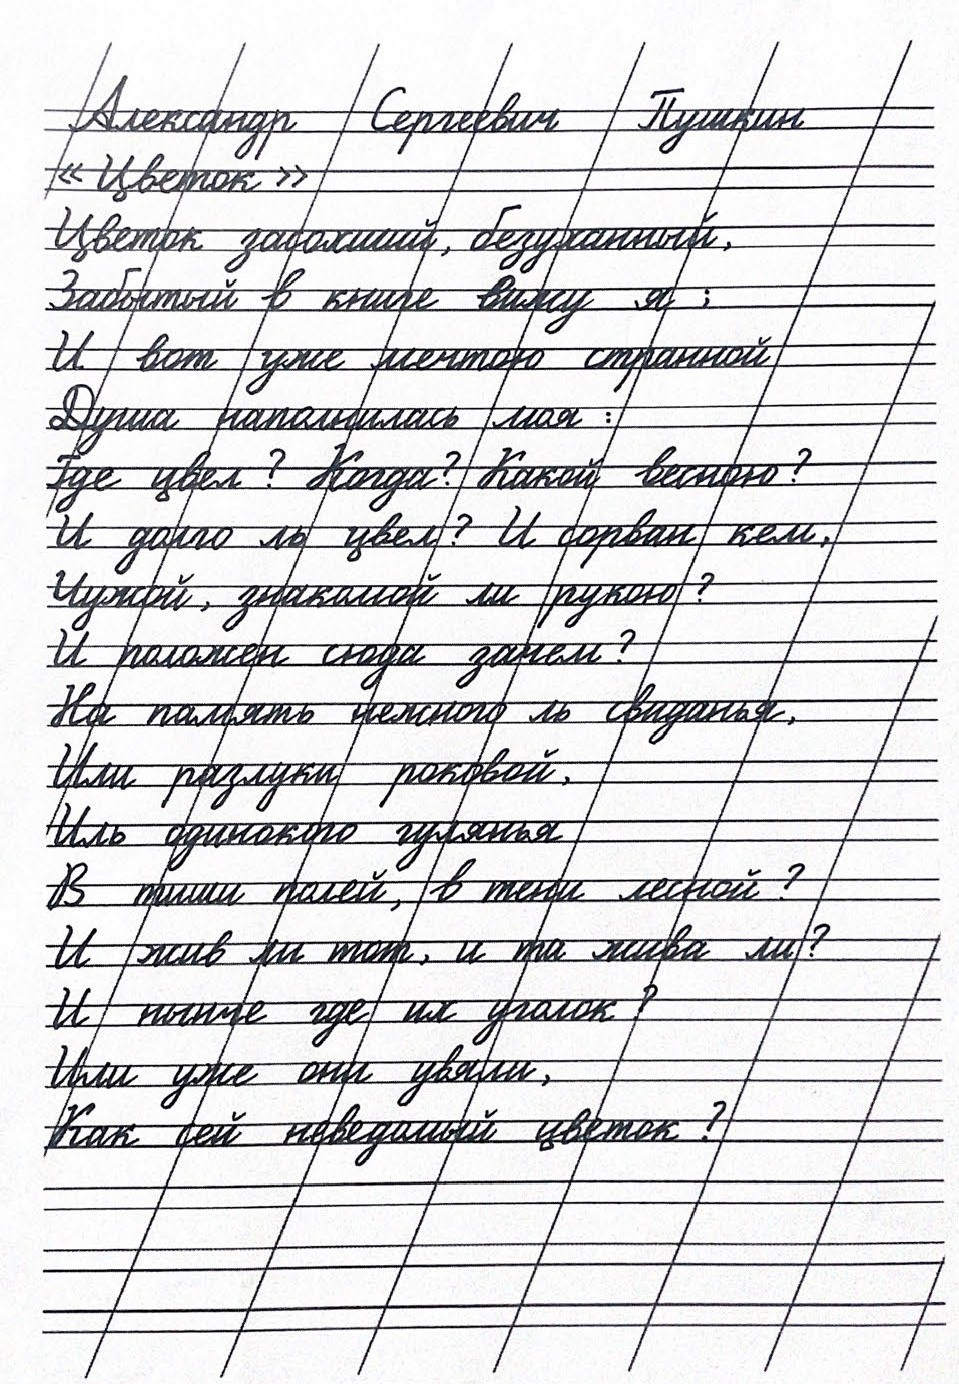 Александр Сергеевич Пушкин
«Цветок»
Цветок засохший, безуханный,
Забытый в книге вижу я;
И вот уже мечтою странной
Душа наполнилась моя:
Где цвел? Когда? Какой весною?
И долго ль цвел? И сорван кем,
Чужой, знакомой ли рукою?
И положен сюда зачем?
На память нежного ль свиданья,
Или разлуки роковой,
Иль одинокого гулянья
В тиши полей, в тени лесной?
И жив ли тот, и та жива ли?
И нынче где их уголок?
Или уже они увяли,
Как сей неведомый цветок?